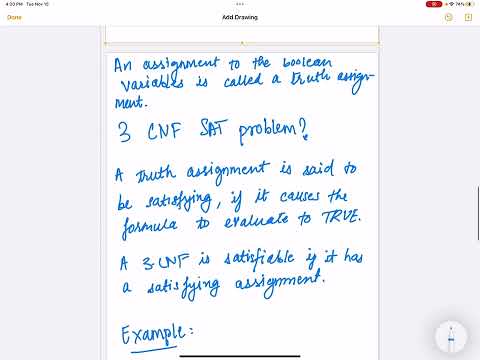 4:00 PM Tue Nov 15
74%
Done
Add Drawing
An assignment to the boolean
variables is called a truth assign-
ment.
3 CNF SAT problem?
A truth assignment is said to
be satisfying, if it causes the
formula to evaluate to TRUE.
A 3-CNF is satisfiable if it has
a satisfying assignment.
Example: